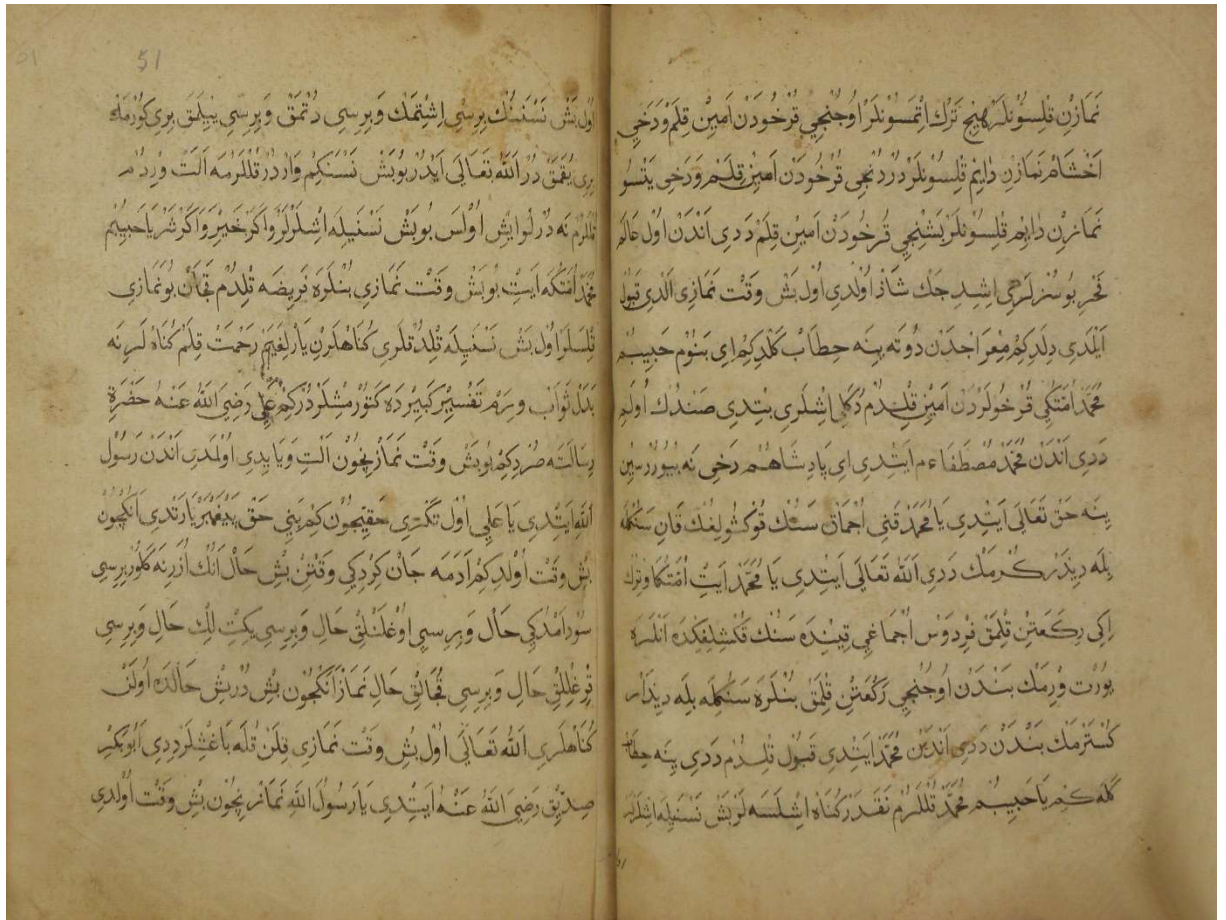 نَمَازِنْ قِلْسُونْلَرْ هِيچْ تَرْكْ اِتْمَسُونْلَرْ اُوجُنْجِي قُرْخُودَنْ اَمِينْ قِلَمْ وَدَخِي
اَخْشَامْ نَمَازِنْ دَايِمْ قِلْسُونْلَرْ دُرْدُنْجِي قُرْخُودَنْ اَمِينْ قِلَمْ وَدَخِي يَتْسُو
نَمَازِنْ دَايِمْ قِلْسُونْلَرْ بَشِنْجِي قُرْخُودَنْ اَمِينْ قِلَمْ دَدِي اَنْدَنْ اُولْ عَالَم
فَخْرِ بُو سُزْلَرِي اِشِدِجَكْ شَاذْ اُولْدِي اُولْ بَشْ وَقْتْ نَمَازِي اَلْدِي قَبُول
اَيْلَدِي دِلَدِكِمْ مِعْرَاجْدَنْ دُونَه يِنَه خِطَابْ كَلْدِكِمْ اِي بَنُومْ حَبِيبُمْ
مُحَمَّدْ اُمَّتَكِي قُرْخُولَرْدَنْ اَمِينْ قِلْدُمْ دُكَلِي اِشْلَرِي بِتْدِي صَنْدُكْ اُولَمْ
دَدِي اَنْدَنْ مُحَمَّدْ مُصْطَفَاءم اَيْتِدِي اِي پَادِشَاهُمْ دَخِي نَه بِيُورُرْسِينْ
يِنَه حَقْ تَعَالَي اَيْتِدِي يَا مُحَمَّدْ قَنِي اُجْمَاقْ سَنُكْ قُوكْشُولِغُكْ قَانِ سَنُكْلَه
بِلَه دِيذَرْ كُرْمَكْ دَدِي اَللّٰه تَعَالَي اَيْتِدِي يَا مُحَمَّدْ اَيِتْ اُمَّتُكَا وِتْرُكْ
اِكِي رِكْعَتِنْ قِلْمَقْ فِرْدَوْسْ اُجْمَاغِي قِتِنْدَه سَنُكْ قُكْشِلِغِكْدَه اَنْلَرَه
يُورْتْ وِرْمَكْ بَنْدَنْ اُوجُنْجِي رَكْعَتِنْ قِلْمَقْ بُنْلَرَه سَنُكْلَه بِلَه دِيذَارْ
كُسْتَرْمَكْ بَنْدَنْ دَدِي اَنْدَنْ مُحَمَّدْ اَيْتِدِي قَبُولْ قِلْدُمْ دَدِي يِنَه خِطَابْ
كَلَه كِمْ يَا حَبِيبُمْ مُحَمَّدْ قُلْلَرُمْ نَقَدَرْ كُنَاهْ اِشْلَسَه لَرْ بَشْ نَسْنَيِلَه اِشْلَرْلَرْ
اُولْ بَشْ نَسْنَنُكْ بِرْسِي اِشِتْمَكْ وَبِرْسِي دُتْمَقْ وَبِرْسِي يَيْلَمَقْ بِرِي كُورْمَكْ
بِرِي يُقَمَقْ دُرْ اَللّٰه تَعَالَي اَيْدُرْ بُو بَشْ نَسْنَكِمْ وَارْدُرْ قُلْلَرُمَه اَلَتْ وِرْدُمْ
قُلْلَرُمْ نَه دُرْلُو اِيشْ اُولْسَ بُو بَشْ نَسْنَيِلَه اِشْلَرْلَرْ وَاكَرْ خَيْرْ وَاكَرْ شَرْ يَا حَبِيبُمْ
مُحَمَّدْ اُمَّتُكَه اَيِتْ بُو بَشْ وَقْتْ نَمَازِي بُنْلَرَه فَرِيضَه قِلْدُمْ قَچَانْ بُو نَمَازِي
قِلْسَلَرْ اُولْ بَشْ نَسْنَيِلَه قِلْدُقْلَرِي كُنَاهْلَرِنْ يَارْلِغَيَمْ رَحْمَتْ قِلَمْ كُنَاهْ لَرِنَه
بَدَلْ ثَوَابْ وِرَمْ تَفْسِيرِ كَبِيرْدَه كَتُورْمِشْلَرْدُرْ كِمْ عَلِي رَضِيَ اللّٰهُ عَنْهُ حَضْرَةِ
رِسَالَتَه صُرْدِكِمْ بُو بَشْ وَقْتْ نَمَازْ نِچُونْ اَلْتِ وَيَا يِدِي اُولْمَدِي اَنْدَنْ رَسُولْ
اللّٰه اَيْتِدِي يَا عَلِي اُولْ تَكْرِي حَقِيچُونْ كِمْ بَنِي حَقْ پَيْغَمْبَرْ يَارَتْدِي اَنُكْچُونْ
بَشْ وَقْتْ اُولْدِكِمْ اَدَمَه جَانْ كِرْدِكِي وَقْتِنْ بَشْ حَالْ اَنُكْ اُزَرِنَه كَلُورْ بِرْسِي
سُودْ اَمْدُكِي حَالْ وَبِرْسِي اُوغْلَنْلِقْ حَالِ وَبِرْسِي يِكِتْ لِكْ حَالِ وَبِرْسِي
قِرْغِلْلِقْ حَالِ وَبِرْسِي قُجَالِقْ حَالِ نَمَازْ اَنُكْچُونْ بَشْ دُرْ بَشْ حَالْدَه اُولَنْ
كُنَاهْلَرِي اَللّٰه تَعَالَي اُولْ بَشْ وَقْتْ نَمَازِي قِلَنْ قُلَه بَاغِشْلَرْ دِدِي اَبُوبَكْرْ
صِدِّيقْ رَضِيَ اللّٰهُ عَنْهُ اَيْتِدِي يَارَسُولَ اللّٰه نَمَازْ نِچُونْ بَشْ وَقْتْ اُولْدِي
51